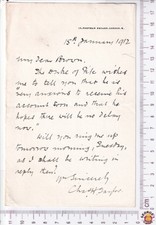 15th January 1912
My dear Brown,
The Duke of Fife wishes
me to tell you that he is
very anxious to receive his
account soon and that he
hopes there will be no delay
now.
Will you ring me up
tomorrow morning, Tuesday,
as I shall be writing in
reply then?
Yrs sincerely